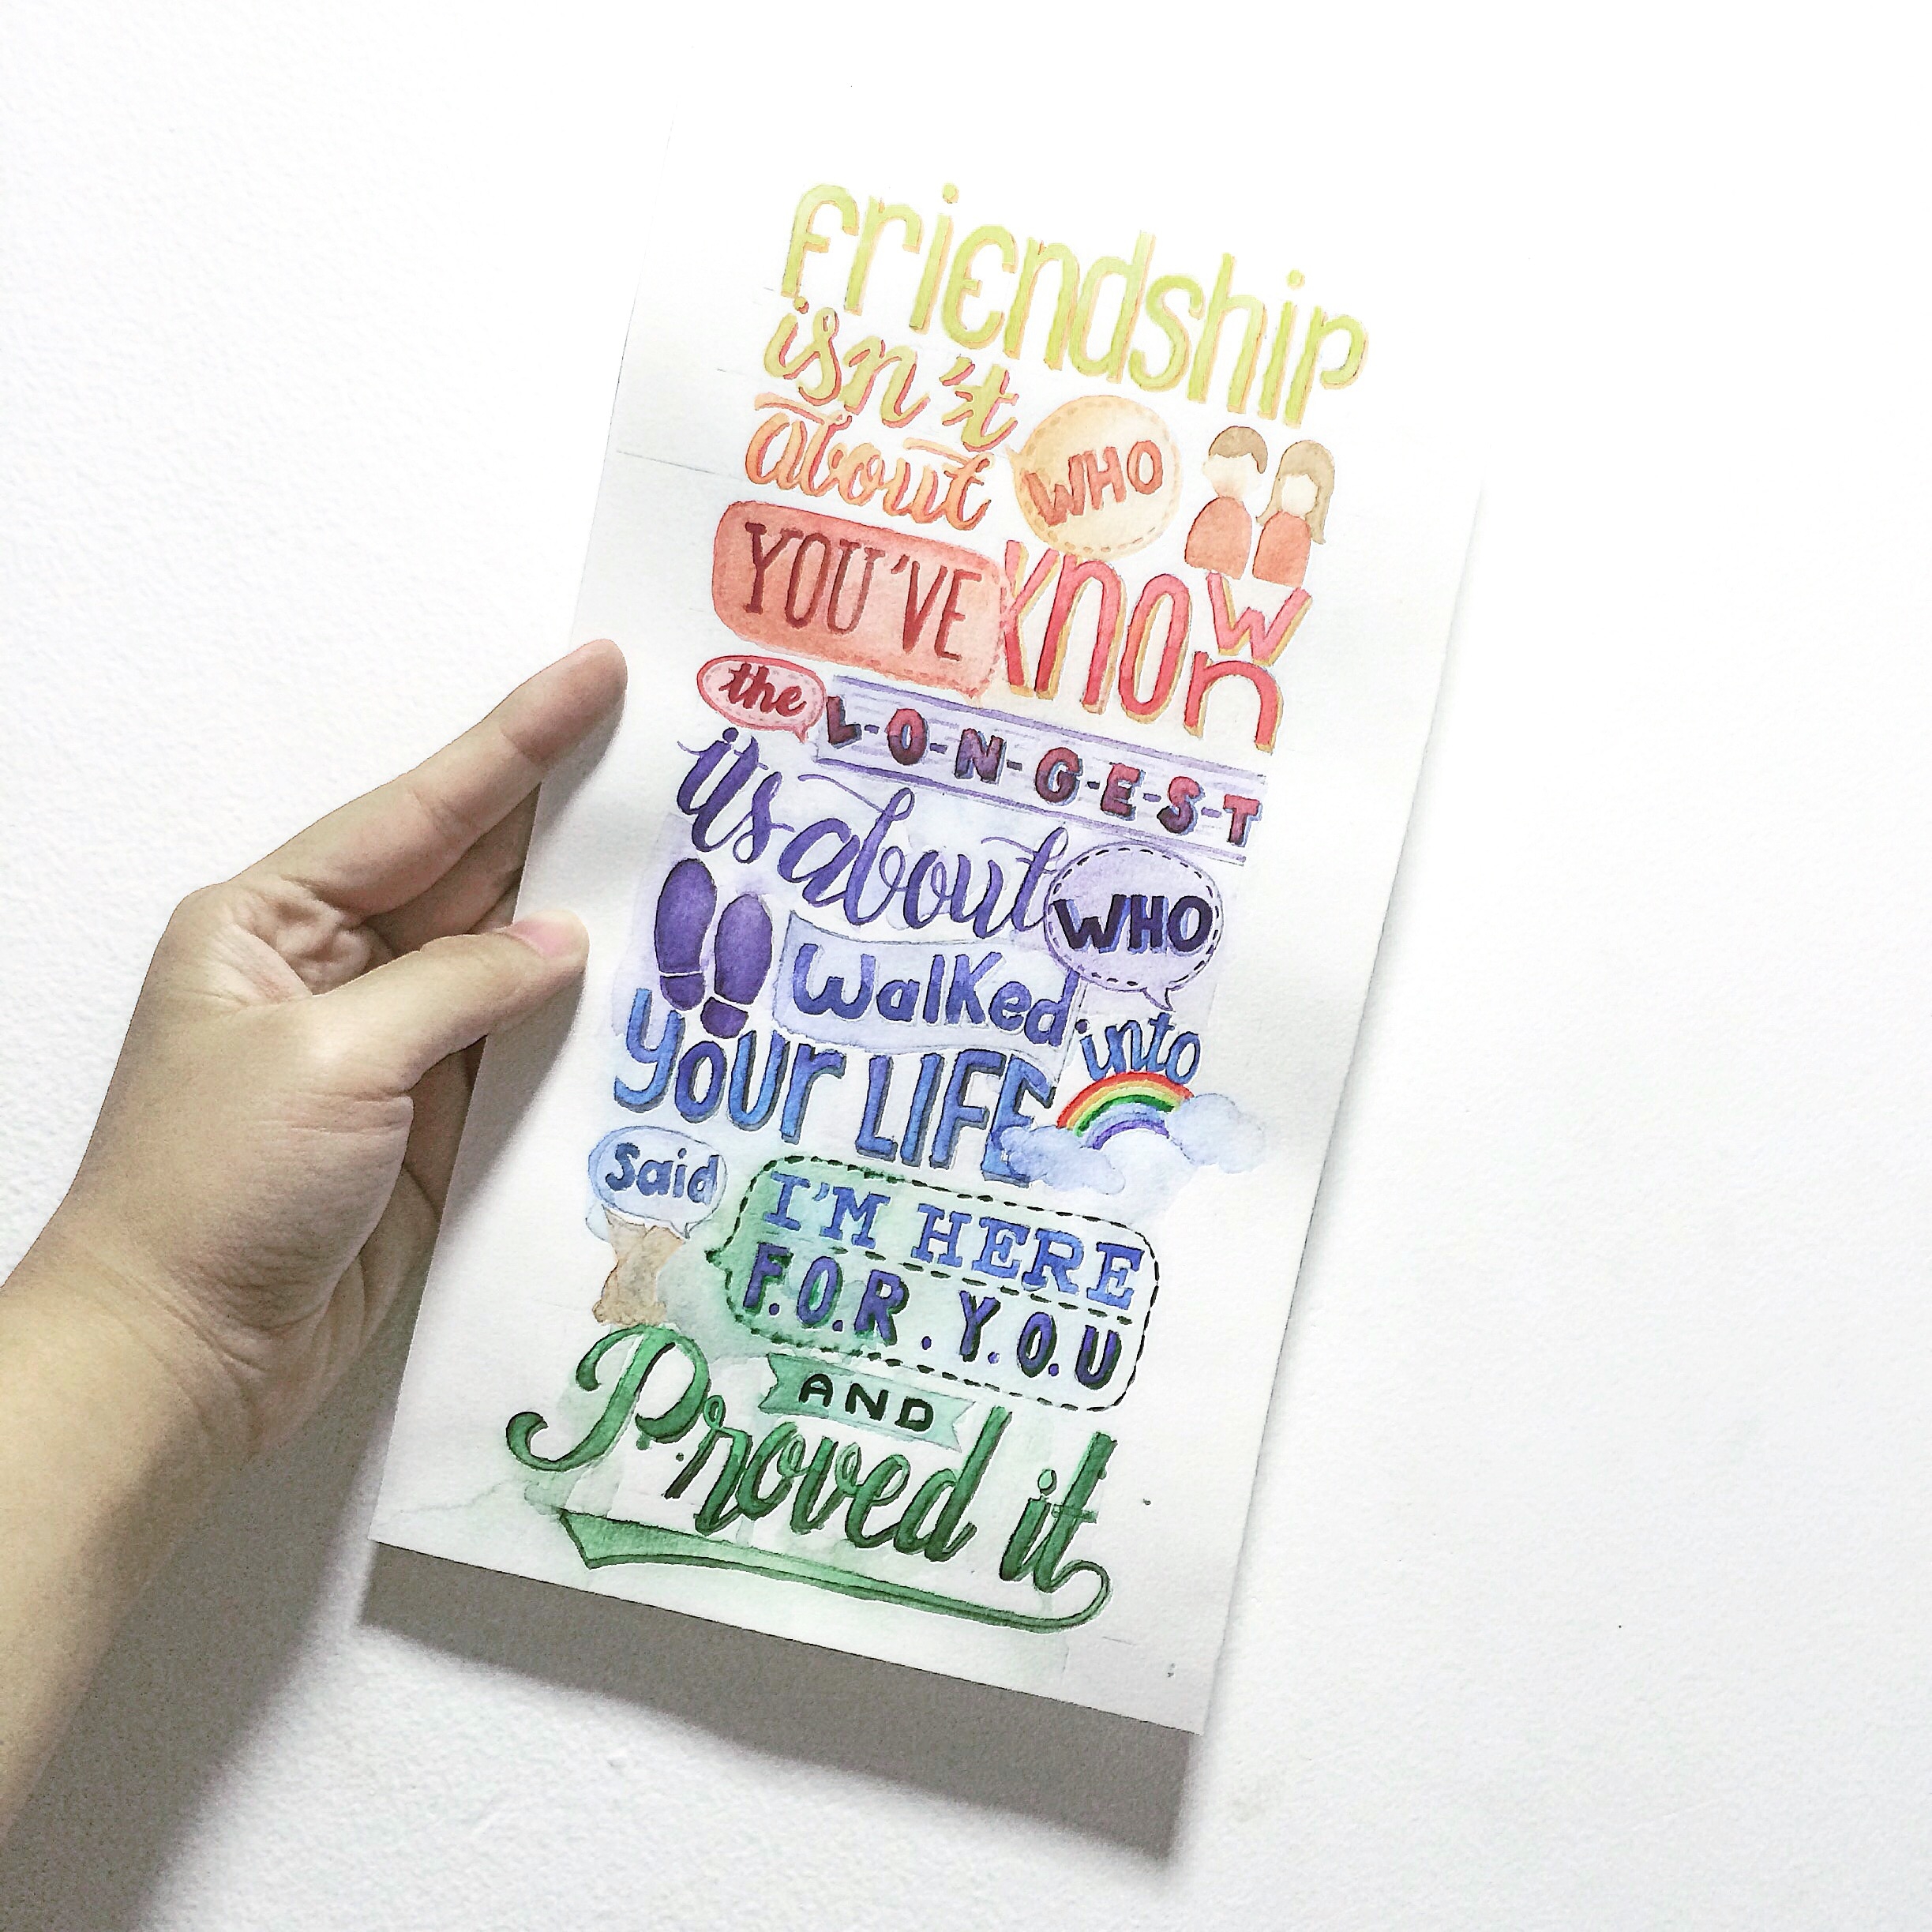 friendship
isn't
about WHO
YOU'VE known
the L-O-N-G-E-S-T
it's about WHO
Walked into
your LIFE
said I'M HERE
F.O.R.Y.O.U
AND
Proved it